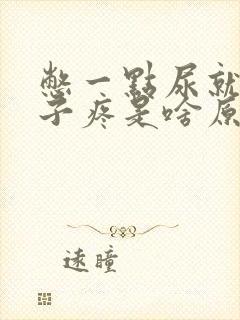 憋一點尿就
子疼是啥原
遠瞳